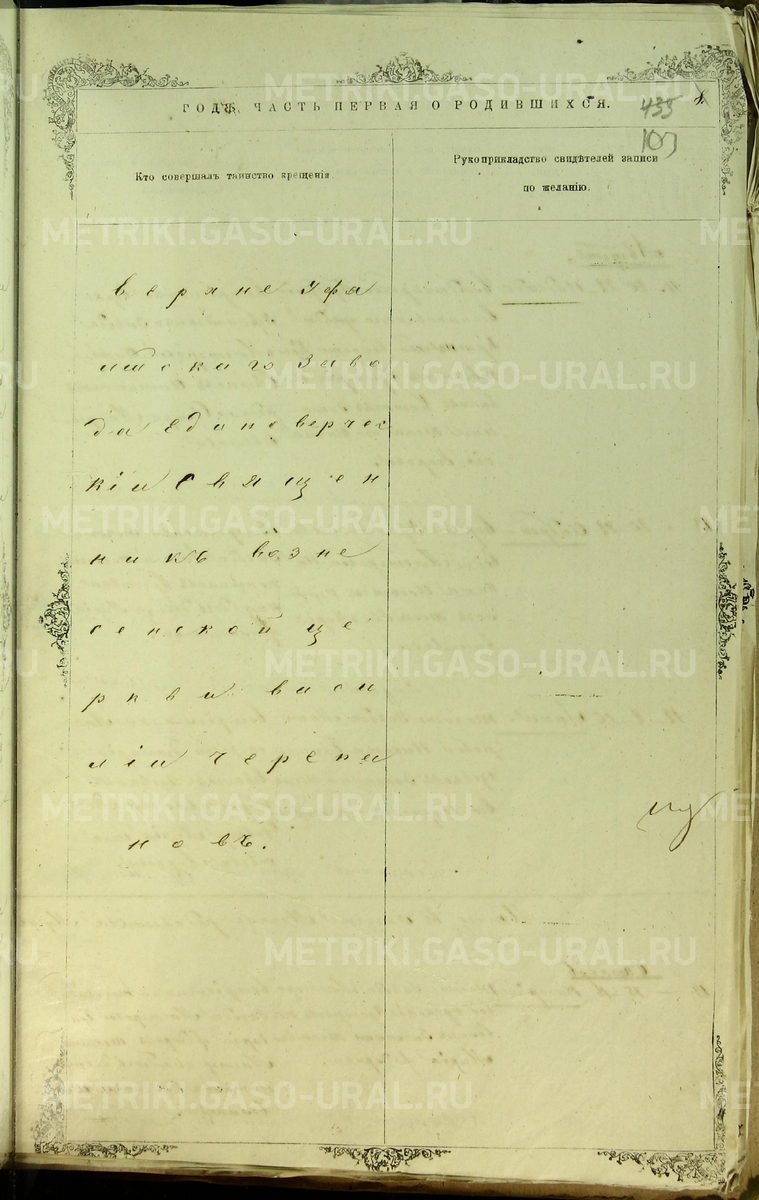 ГОДѢ, ЧАСТЬ ПЕРВАЯ О РОДИВШИХСЯ.
435
103
Кто совершалъ таинство крещенія.
Рукоприкладство свидѣтелей записи
по желанію.
верхне Уфа
лѣйскаго Заво
да Единоверчес
кій Священ
никъ возне
сенской це
ркви васи
лій черепа
новъ.
METRIKI.GASO-URAL.RU